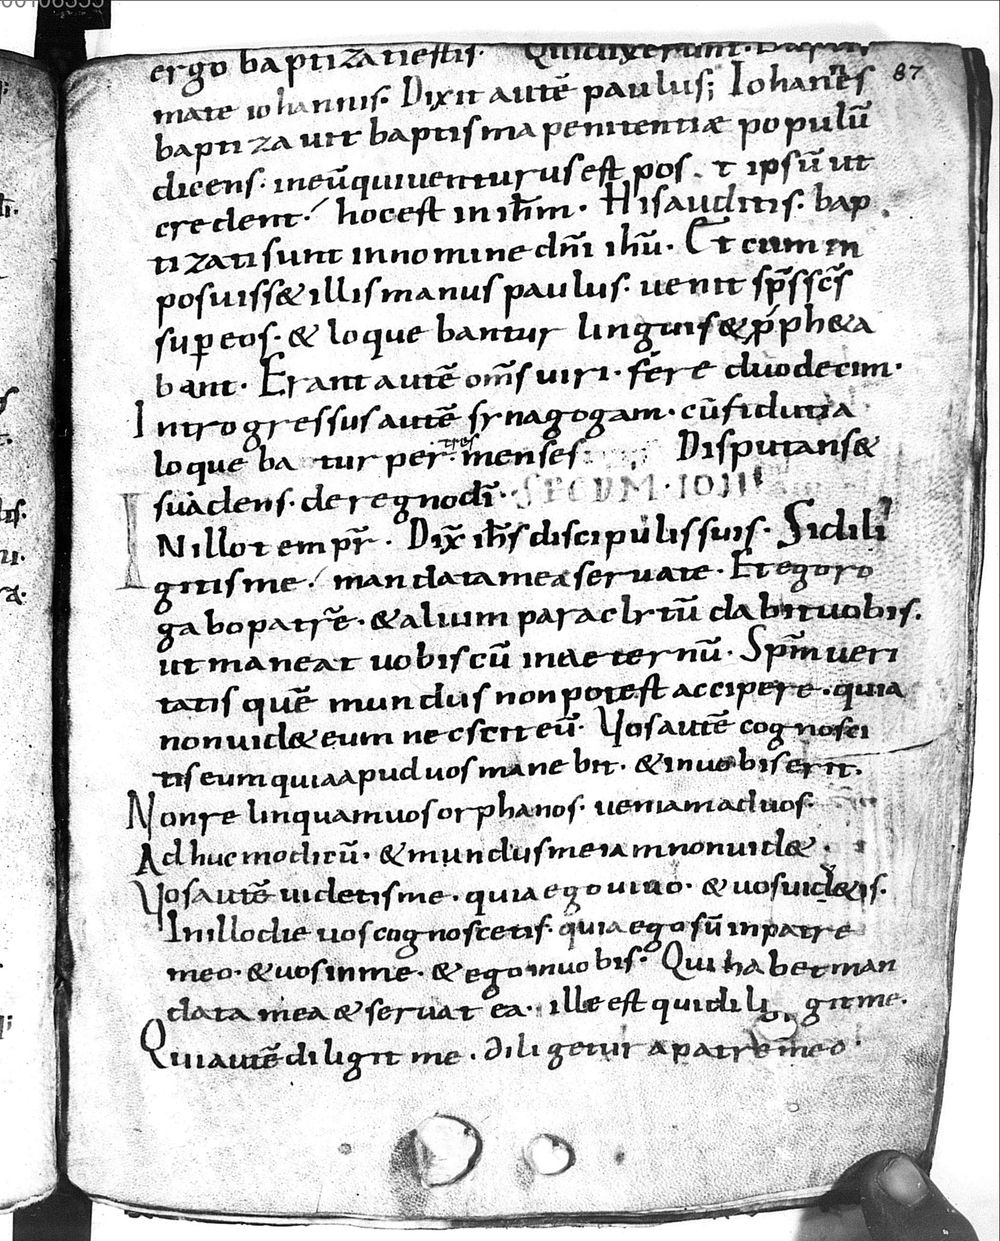 ergo baptizati estis· Qui dixerunt· Baptis
87
mate iohannis· Dixit autē paulus; Iohannes
baptizauit baptisma penitentiæ populū
dicens· in eū qui uenturus est pos t ipsū ut
crederent· hoc est in ih̄m· His auditis· bap
tizati sunt in nomine dn̄i ihū· Et cum in
posuiss& illis manus paulus· uenit sp̄s sc̄s
sup eos· & loquebantur linguis & p̄ph&a
bant· Erant autē om̄s uiri· fere duodecim·
Introgressus autē synagogam· cū fidutia
loqueba tur per· tres menses· Disputans &
suadens· de regno dī· SECDM·IOH
IN illo tempr̄· Dix̄ ih̄s discipulis suis· Si dili
gitis me· mandata mea seruate· Et ego ro
gabo patrē· & alium paraclytū dabit uobis·
ut maneat uobiscū in aeternū· Spm̄ ueri
tatis quē mundus non potest accipere· quia
non uid& eum nec scit eū· Vos autē cognosci
tis eum quia apud uos manebit· & in uobis erit·
Non relinquam uos orphanos· ueniam ad uos·
Adhuc modicū· & mundus me iam non uid&·
Vos autē uidetis me· quia ego uiuo· & uos uiu&is·
In illo die uos cognoscetis· quia ego sū in patre
meo· & uos in me· & ego in uobis· Qui habet man
data mea & seruat ea· ille est qui dili git me·
Qui autē diligit me· diligetur a patre meo·